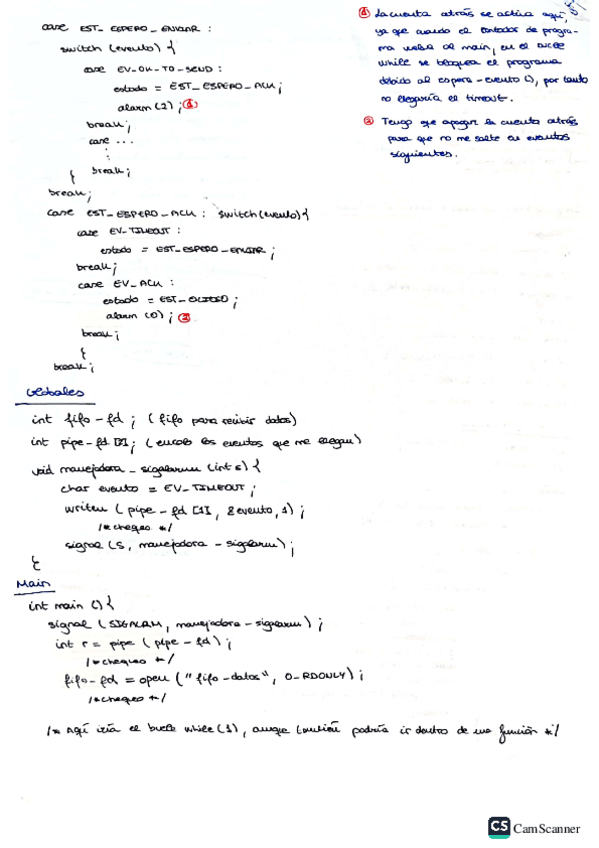 case EST_ESPERO_ENVIAR :
switch (evento) {
case EV_OK_TO_SEND :
estado = EST_ESPERO_ACK ;
alarm (2) ; ①
break ;
case ...
:
break ;
}
break ;
case EST_ESPERO_ACK : switch (evento) {
case EV_TIMEOUT :
estado = EST_ESPERO_ENVIAR ;
break ;
case EV_ACK :
estado = EST_OCIOSO ;
alarm (0) ; ②
break ;
}
break ;
① La cuenta atrás se activa aquí,
ya que cuando el contador de progra-
ma vuelva al main, en el bucle
while se bloquea el programa
debido al espera-evento (), por tanto
no llegaría el timeout.
② Tengo que apagar la cuenta atrás
para que no me salte en eventos
siguientes.
Globales
int fifo_fd ; ( fifo para recibir datos)
int pipe_fd [2] ; ( encolo los eventos que me llegan)
void manejadora_sigalarm (int s) {
char evento = EV_TIMEOUT ;
write ( pipe_fd [1], &evento, 1) ;
/* chequeo */
signal (s, manejadora_sigalarm) ;
}
Main
int main () {
signal (SIGALRM, manejadora_sigalarm) ;
int r = pipe ( pipe_fd ) ;
/* chequeo */
fifo_fd = open ( "fifo_datos", O_RDONLY) ;
/* chequeo */
/* Aquí iría el bucle while (1), aunque también podría ir dentro de una función */
CS CamScanner